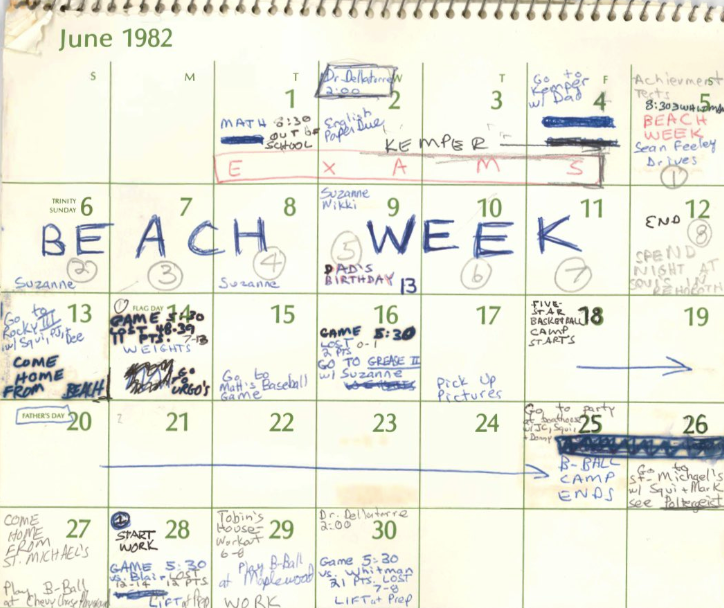 June 1982
S M T W T F S
1
MATH 8:30
OUT OF
SCHOOL
Dr. Dellatorre
2:00
2
English
Paper Due
3
KEMPER
Go to
Kemper
w/ Dad
4
E X A M S
Achievement
Tests
5
8:30
BEACH
WEEK
Sean Feeley
Drives
1
TRINITY
SUNDAY 6
7
8
Suzanne
Nikki
9
10
11
12
BEACH WEEK
2
3
4
5
6
7
8
Suzanne
Suzanne
DAD'S
BIRTHDAY
13
END
SPEND
NIGHT AT
13
Go to
Rocky III
w/ Squi, PJ,
COME
HOME
FROM BEACH
1
FLAG DAY
14
GAME 5:30
LOST 48-39
11 PTS.
WEIGHTS
GO TO
URGO'S
15
Go to
Matt's Baseball
Game
16
GAME 5:30
LOST 0-1
2 PTS
GO TO GREASE II
w/ Suzanne
17
Pick Up
Pictures
FIVE-
STAR
BASKETBALL
CAMP
STARTS
18
19
FATHER'S DAY
20
21
22
23
24
Go to party
at
w/ JC, Squi
25
26
B-BALL
CAMP
ENDS
Go to
St. Michael's
w/ Squi + Mark
see Poltergeist
COME
HOME
FROM
ST. MICHAEL'S
27
Play B-Ball
at Chevy Chase
2
28
START
WORK
GAME 5:30
vs. Blair LOST
12-14 12 PTS
LIFT at Prep
Tobin's
House-
Workout
6-8
29
Play B-Ball
at Maplewood
WORK
Dr. Dellatorre
2:00
30
Game 5:30
vs. Whitman
21 PTS. LOST
7-8
LIFT at Prep